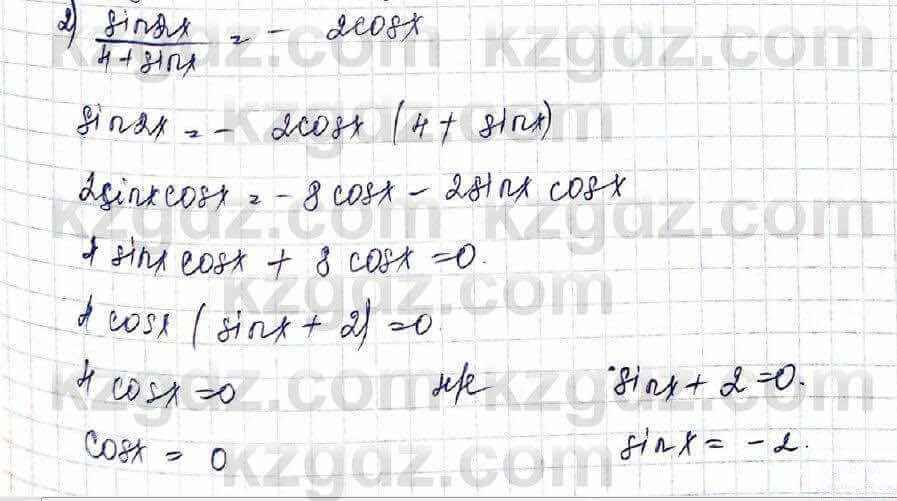 2) sin2x / 4 + sinx = - 2cosx
sin2x = - 2cosx (4 + sinx)
2sinxcosx = - 8 cosx - 2sinx cosx
4 sinx cosx + 8 cosx = 0.
4 cosx (sinx + 2) = 0.
4 cosx = 0 sinx + 2 = 0.
cosx = 0 sinx = - 2.
kzgdz.com kzgdz.com
kzgdz.com
kzgdz.com kzgdz.com
kzgdz.com
kzgdz.com kzgdz.com
kzgdz.com